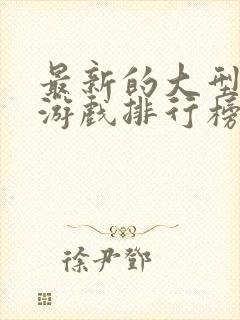 最新的大型
游戏排行榜
徐尹鄧